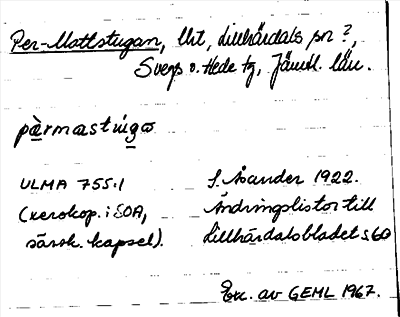 Per-Mattstugan, Ust, Lillhärdals sn?,
Svegs o. Hede tg, Jämtl. län.
pèrmastúgɷ
ULMA 755.1 S. Åander 1922.
(xerokop. i SOA, Ändringslistor till
särsk. kapsel). Lillhärdalsbladet s 60
Exc. av GEHL 1967.